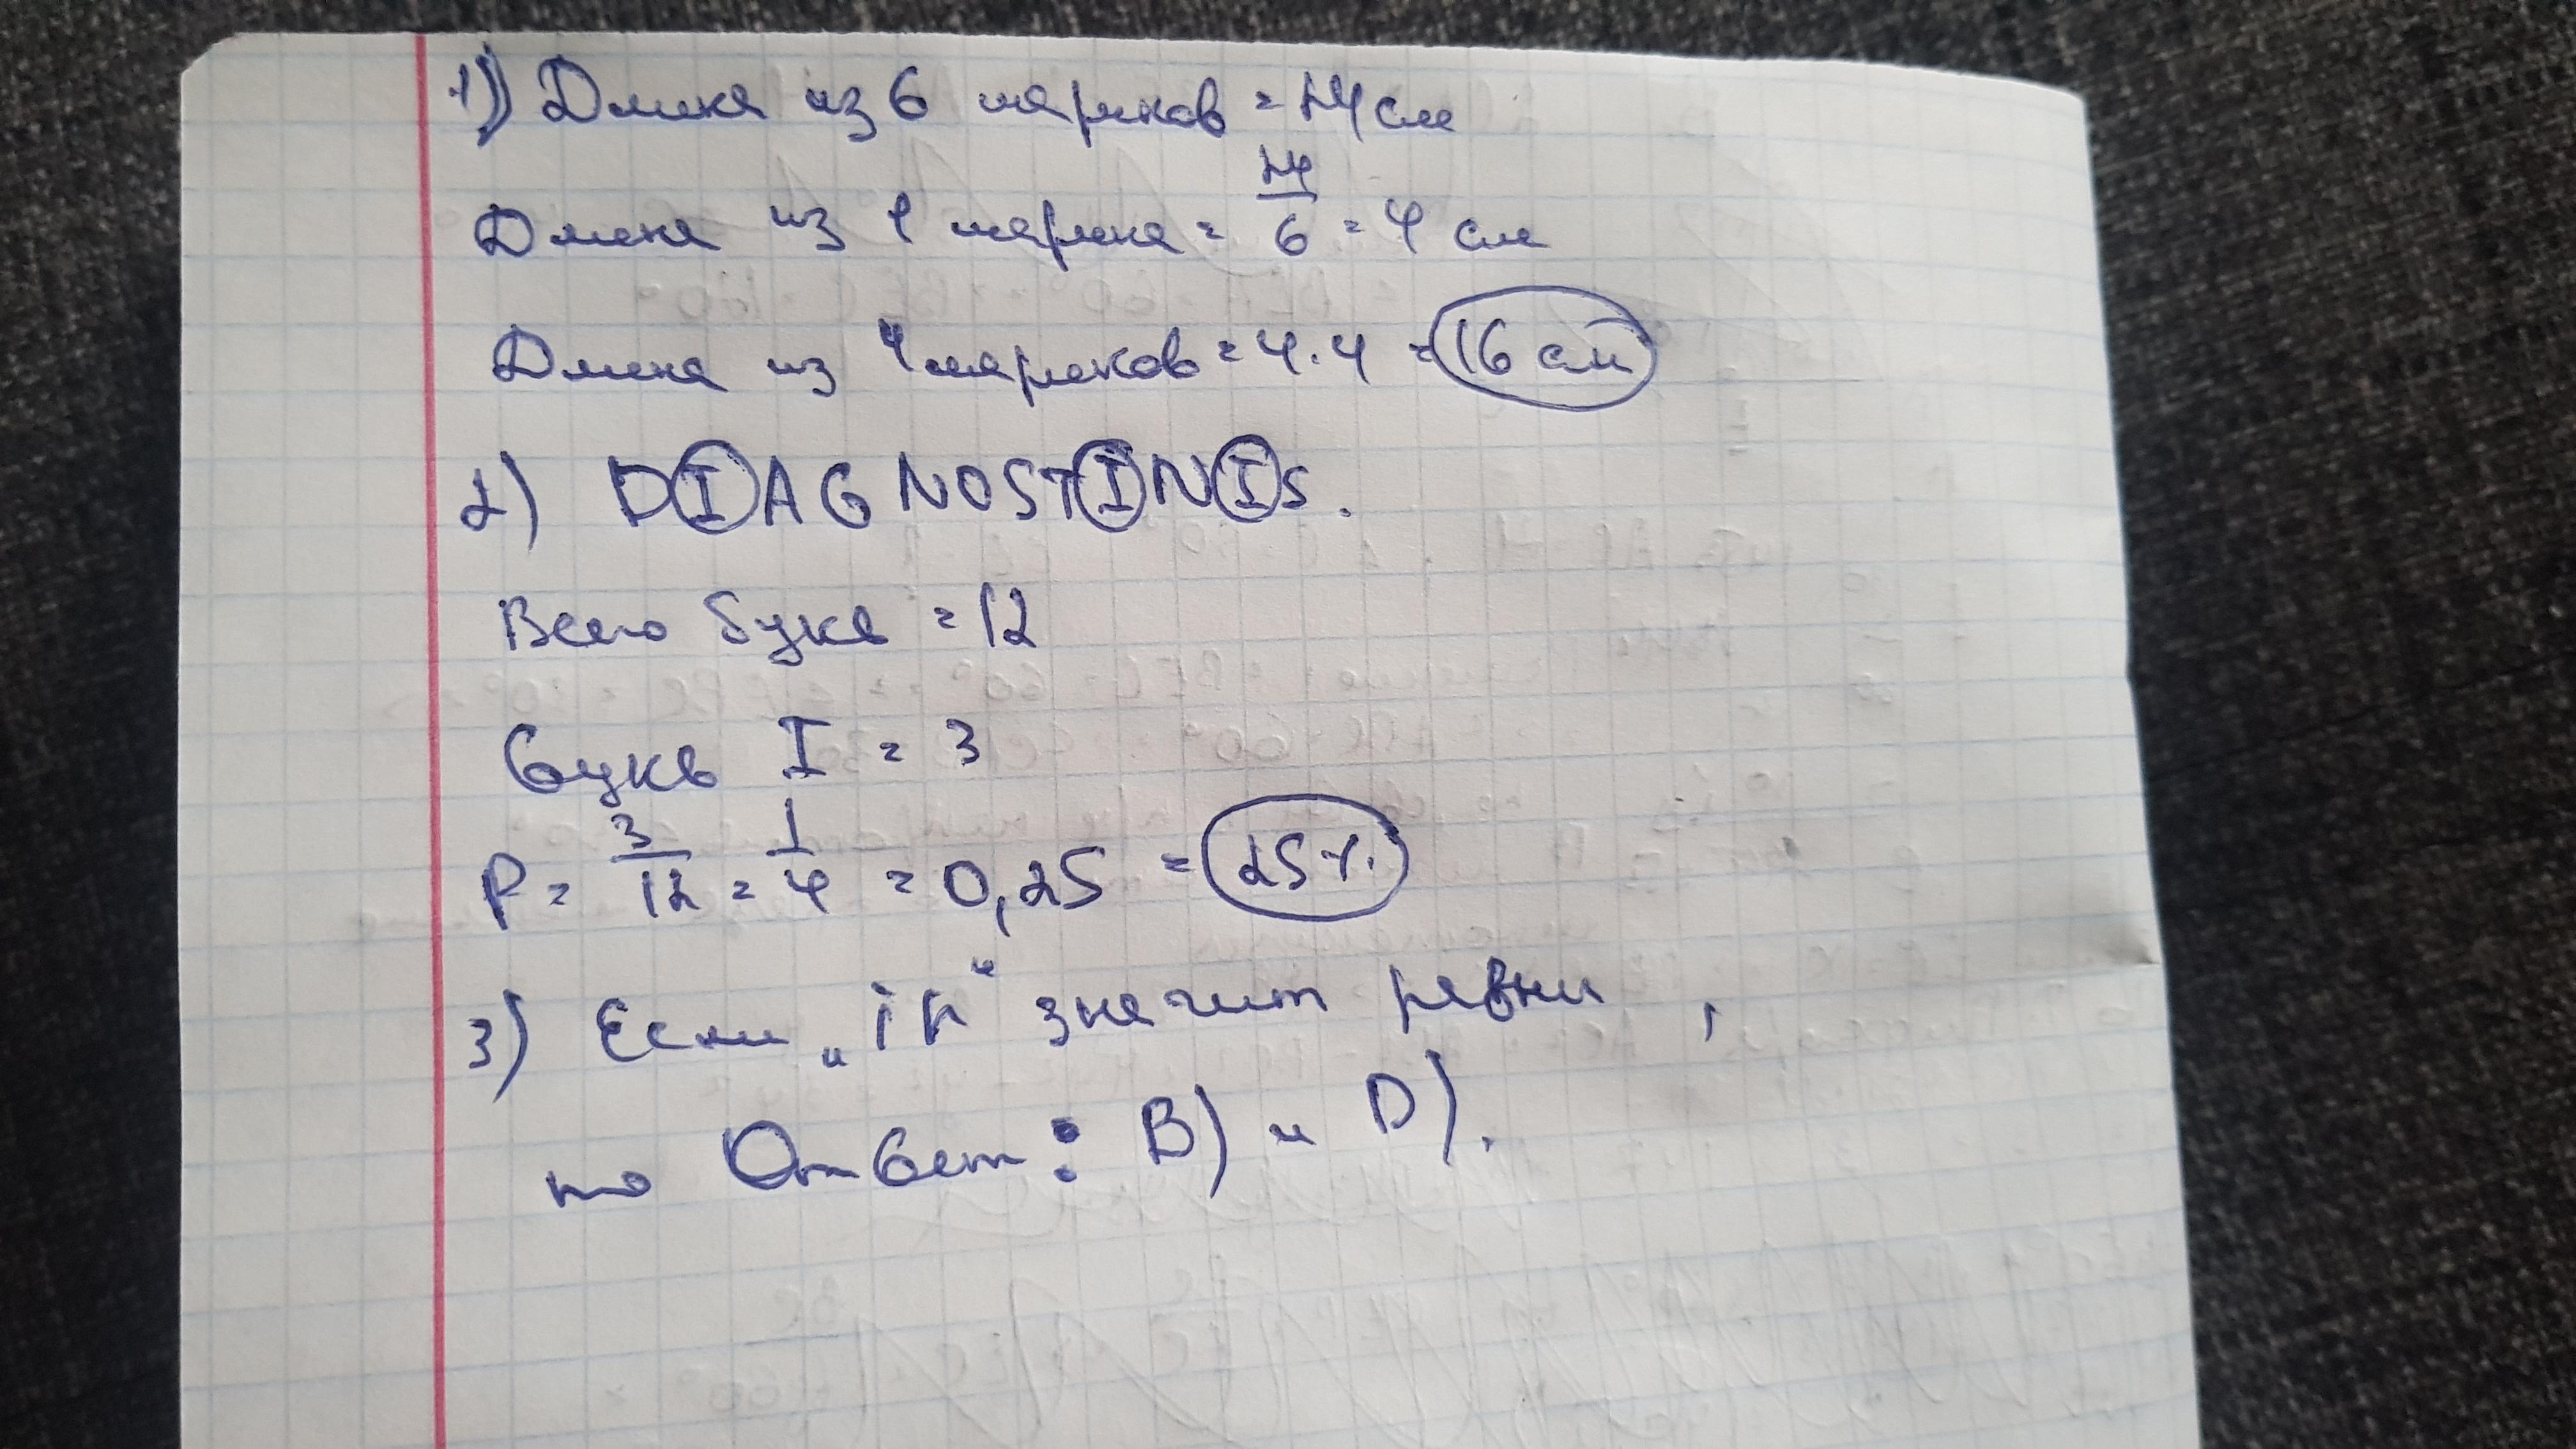 1) Длина из 6 шариков = 24 см
Длина из 1 шарика = 24/6 = 4 см
Длина из 4 шариков = 4·4 = 16 см
2) DIAGNOSTINIS.
Всего букв = 12
Букв I = 3
P = 3/12 = 1/4 = 0,25 = 25%
3) Если „ir“ значит равны,
то Ответ: B) и D).